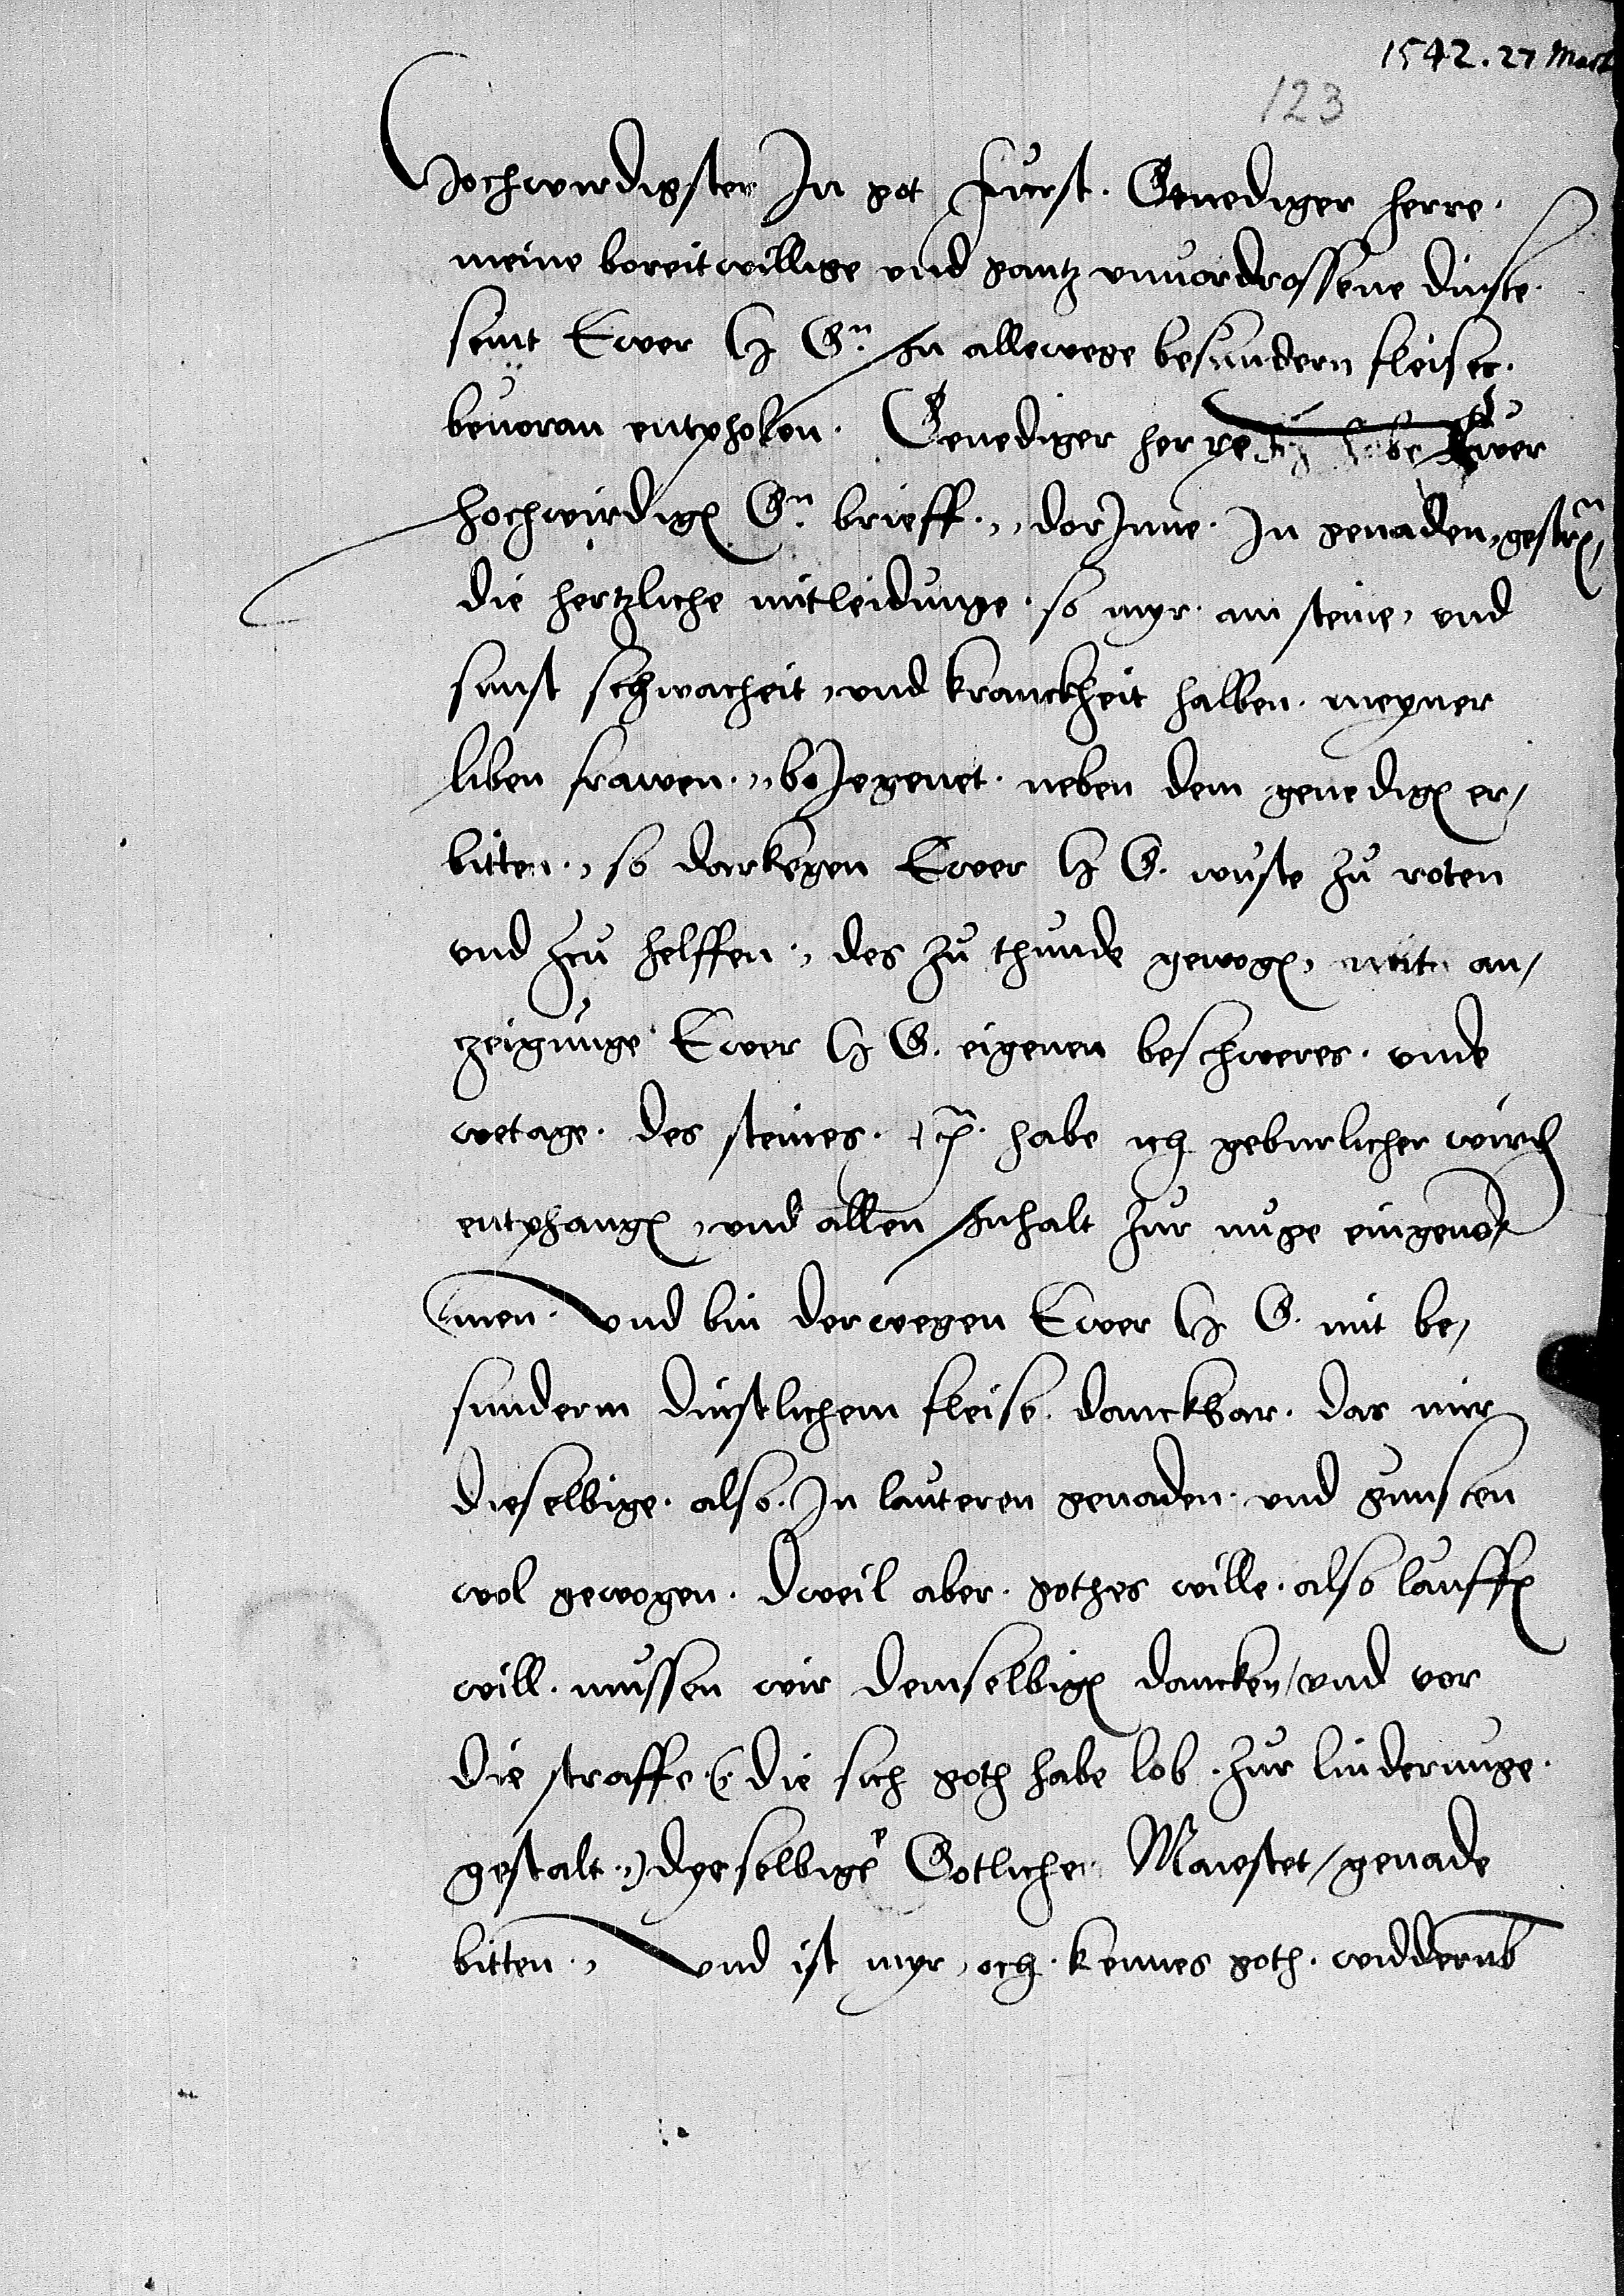 1542. 27 Mart
123
Hochwirdigster In got Furst. Genediger herre.
meine bereitwillige vnd gantz vnuordrossene dinste.
seint Ewer H Gn. In allewege besundern fleises.
beuoran entpholen. Genediger herre Ich habe Ewer
hochwirdigen Gn. brieff., dorInne. In genaden, gestrn,
die hertzliche mitleidunge. so myr. am steine, vnd
sunst schwacheit, vnd kranckheit halben. meyner
liben frawen., boIegenet. neben dem genedigen er/
bitten., so darkegen Ewer H G. wuste zu roten
vnd zcu helffen., des zu thunde gewogen, mit an/
czeigunge Ewer H G. eigenen beschweres. vnde
wetage. des steines. habe ich geburlicher wird
entphangen, vnd allen Inhalt zur nuge eingenom
men. Vnd bin derwegen Ewer H G. mit be/
sunderm dinstlichem fleise. danckbar. das mir
dieselbige. also. In lauteren genaden. vnd gunsten
wol gewogen. Dweil aber. gothes wille. also lauffen
will. mussen wir demselbigen dancken/ vnd vor
die straffe. (. die sich goth habe lob. zur linderunge.
gestalt.,) dyeselbige Gotliche Maiestet/ genade
bitten., Vnd ist myr, och. kennes goth. widderub